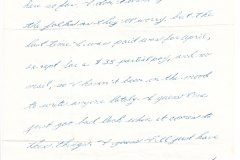 so far. I don't
the folks as they all worry. but the
last time I was paid was for April,
except for a $35 partial pay, and no
mail, so I haven't been in the mood
to write anyone lately. I guess I've
just got bad luck when it comes to
things. I guess I'll just have